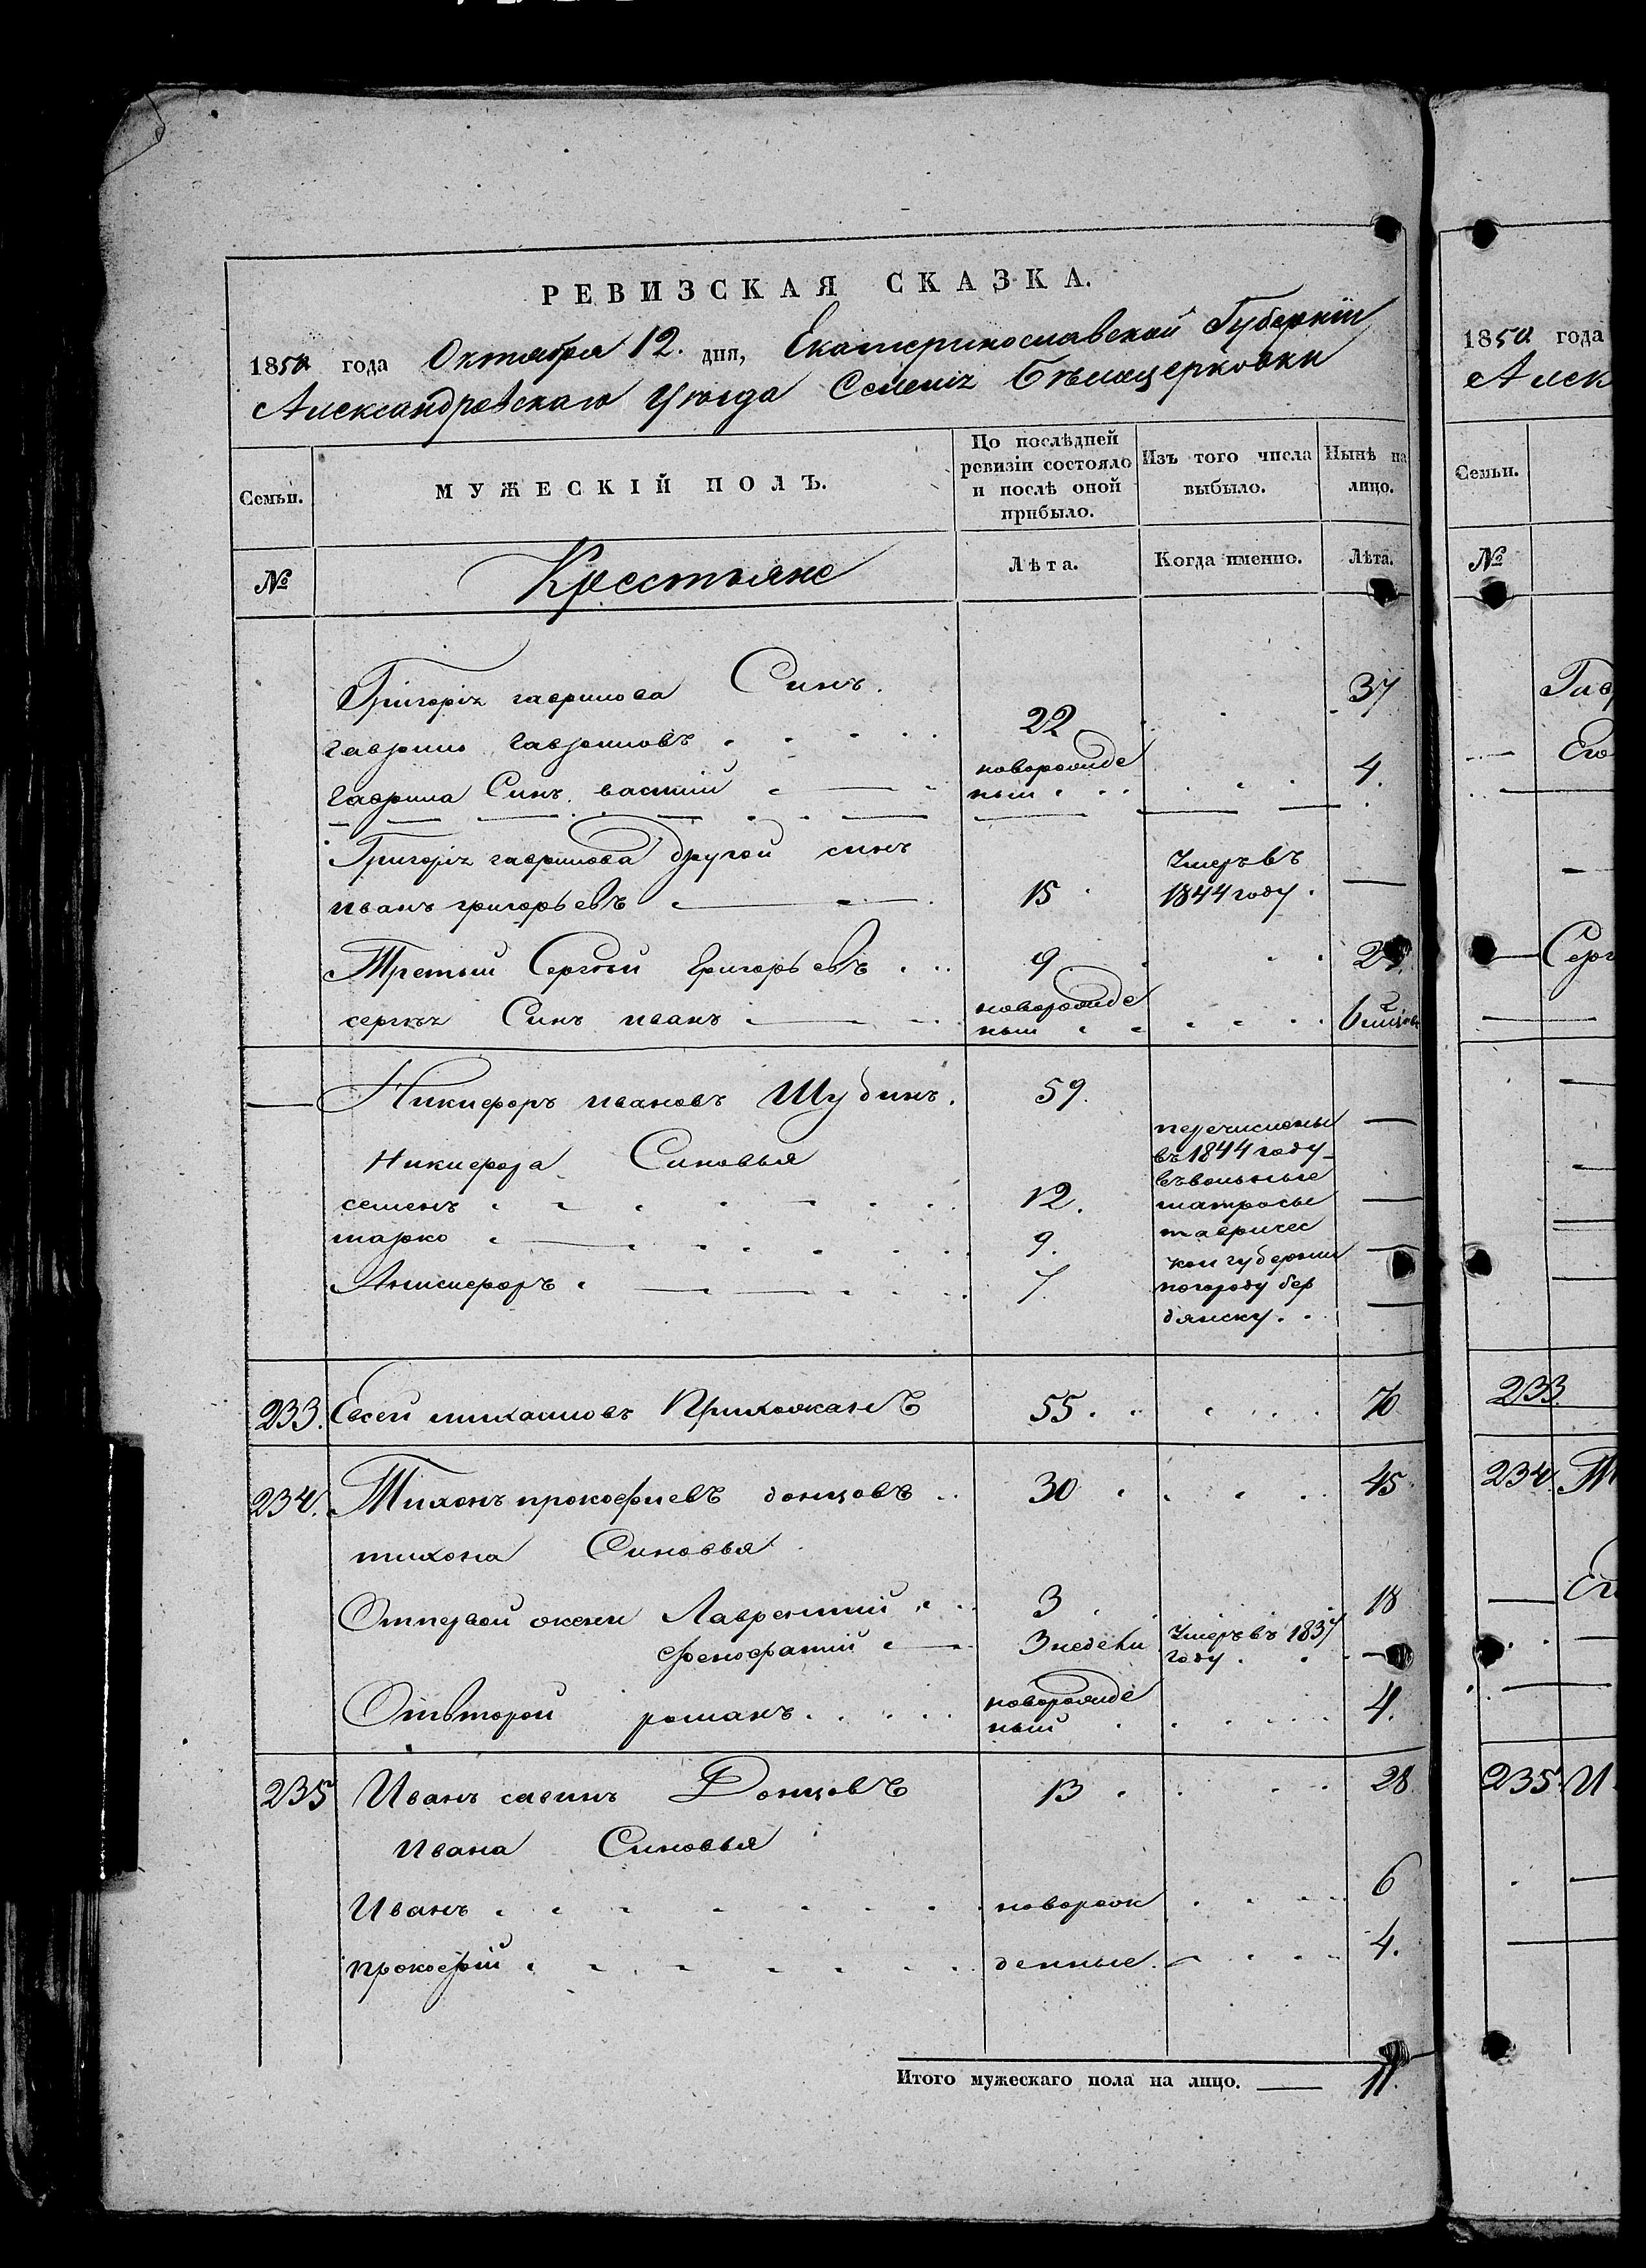 РЕВИЗСКАЯ СКАЗКА.
1850 года Октября 12. дня, Екатеринославской Губерніи
Александровскаго Уѣзда Селенія Бѣлоцерковки
Семьи.
МУЖЕСКІЙ ПОЛЪ.
По послѣдней ревизіи состояло и послѣ оной прибыло.
Изъ того числа выбыло.
Нынѣ на лицо.
№
Крестьяне
Лѣта.
Когда именно.
Лѣта.
Григорія гаврилова Синъ. 37
гаврило гавриловъ 22
гаврила Синъ василий новорожде 4.
ный
Григорія гаврилова другой синъ Умеръ въ
иванъ григорьевъ 15 1844 году. —
Третий Сергѣй григорьевъ 9
сергѣя Синъ иванъ новорожде 6
ный
Никифоръ ивановъ Шубинъ. 59. —
Никифора Синовья
семенъ 12. —
марко 9. —
Анисифоръ 7. —
перечислены
въ 1844 году
въ вольные
матросы
тавричес
кой губернии
по городу бер
дянску.
233. Евсей михаиловъ 55 70
234. Тихонъ прокофиевъ донцовъ 30 45
тихона Синовья
От первой жены Лаврентий 3 18
3 недели Умеръ въ 1837 —
году
От второй романъ новорожде 4.
ный
235 Иванъ савинъ Донцовъ 13 28
Ивана Синовья
Иванъ новорож 6
прокофий денные. 4.
Итого мужескаго пола на лицо. — 11.
1850 года
Алек
Семьи.
№
Гав
Его
Серг
233.
234. Ти
Ег
235. И